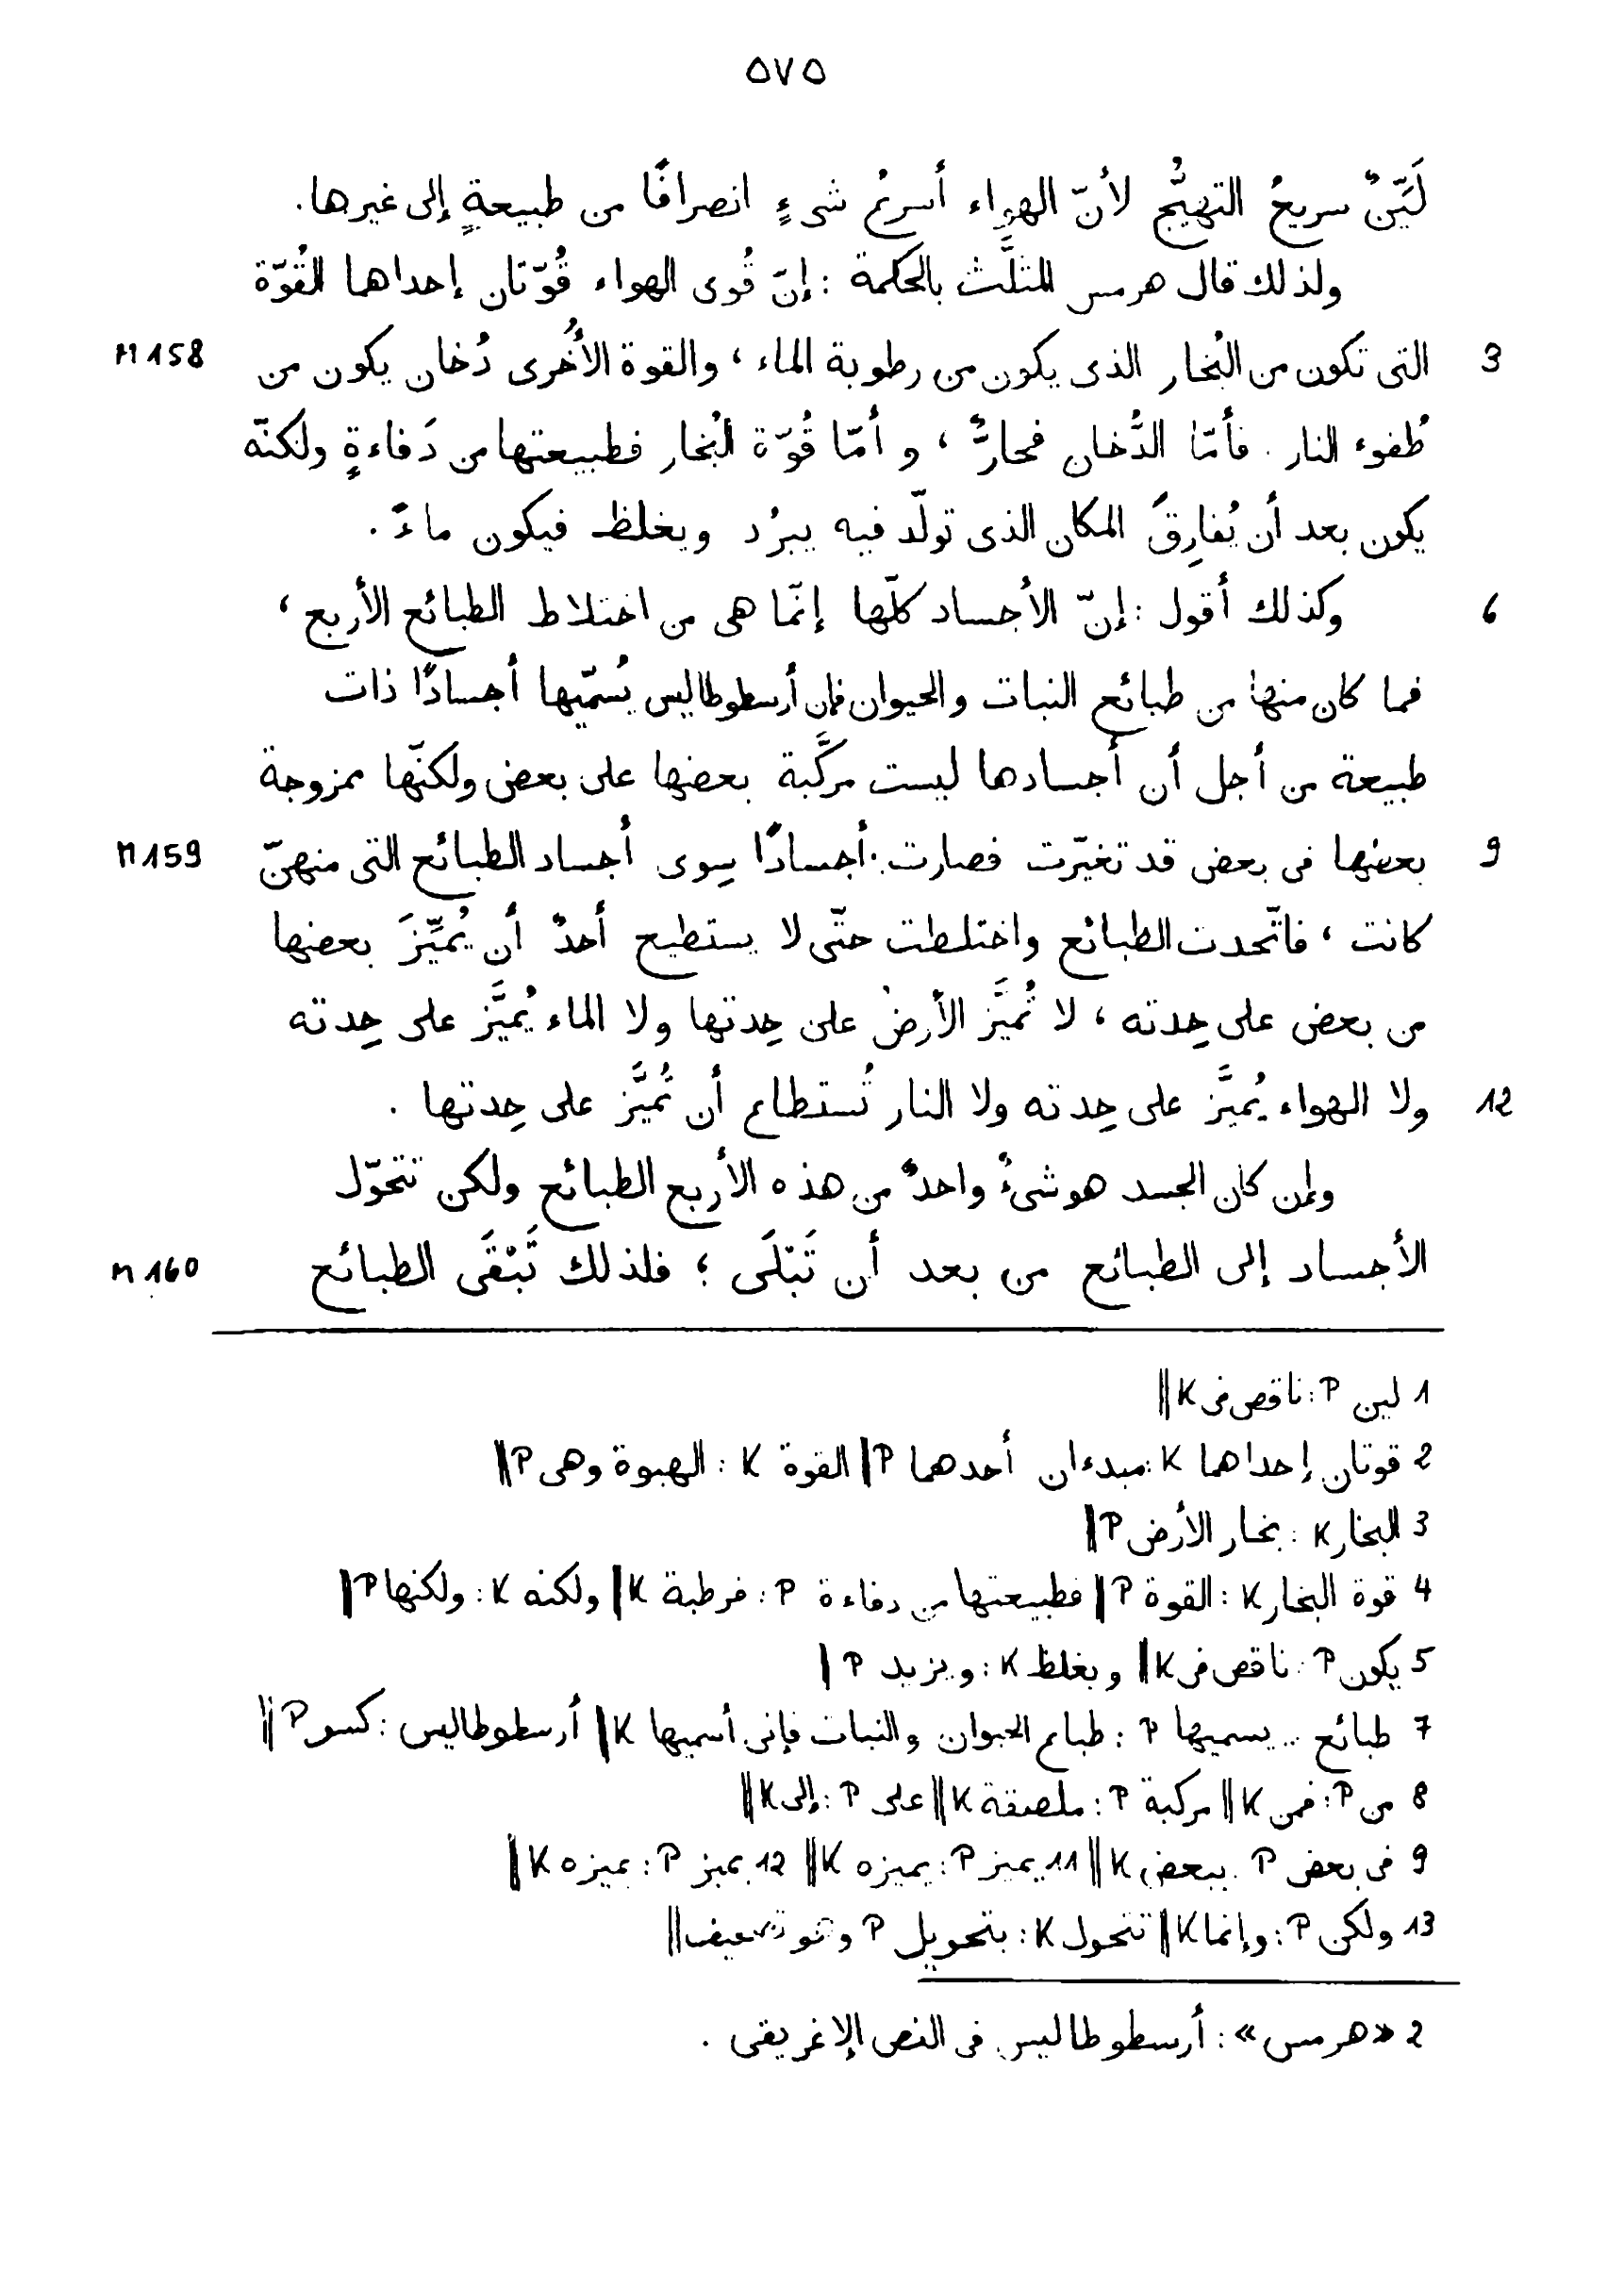 ٥٧٥
لَيِّنٌ سريعُ التهيُّج لأنّ الهواء أسرعُ شىءٍ انصرافًا من طبيعةٍ إلى غيرها.
ولذلك قال هرمس المثلَّث بالحكمة : إنّ قُوى الهواء قُوّتان إحداها القُوّة
3 التى تكون من البُخار الذى يكون من رطوبة الماء ، والقوة الأُخرى دُخان يكون من M 158
طُفوء النار . فأمّا الدُّخان فحارٌّ ، و أمّا قُوّة البُخار فطبيعتها من دَفاءةٍ ولكنّه
يكون بعد أن يُفارِقَ المكان الذى تولّد فيه يبرُد ويغلظ فيكون ماءً .
6 وكذلك أقول : إنّ الأجساد كلّها إنّما هى من اختلاط الطبائع الأربع ،
فما كان منها من طبائع النبات والحيوان فإن أرسطوطاليس يُسمّيها أجسادًا ذات
طبيعة من أجل أن أجسادها ليست مركَّبة بعضها على بعض ولكنّها ممزوجة
9 بعضها فى بعض قد تغيّرت فصارت أجسادًا سِوى أجساد الطبائع التى منهنّ M 159
كانت ، فاتّحدت الطبائع واختلطت حتّى لا يستطيع أحدٌ أن يُميِّزَ بعضها
من بعض على حِدته ، لا تُميَّز الأرضُ على حِدتها ولا الماء يُميَّز على حِدته
12 ولا الهواء يُميَّز على حِدته ولا النار تُستطاع أن تُميَّز على حِدتها .
وإن كان الجسد هو شىءٌ واحدٌ من هذه الأربع الطبائع ولكن تتحوّل
الأجساد إلى الطبائع من بعد أن تَبْلَى ؛ فلذلك تَبْقَى الطبائع M 160
1 لين P : ناقص فى K ||
2 قوتان إحداها K : مبدءان أحدهما P || القوة K : الهبوة وهى P ||
3 البخار K : بخار الأرض P ||
4 قوة البخار K : القوة P || فطبيعتها من دفاءة P : فرطبة K || ولكنه K : ولكنها P ||
5 يكون P : ناقص فى K || ويغلظ K : ويزيد P |
7 طبائع .. يسميها P : طباع الحيوان والنبات فإنى أسميها K || أرسطوطاليس : كسو P ||
8 من P : فمن K || مركبة P : ملصقة K || على P : إلى K ||
9 فى بعض P . ببعض K || 11 يميز P : يميزه K || 12 يميز P : يميزه K ||
13 ولكن P : وإنما K || تتحول K : بتحويل P وهو تضعيف ||
2 «هرمس» : أرسطوطاليس فى النص الإغريقى .